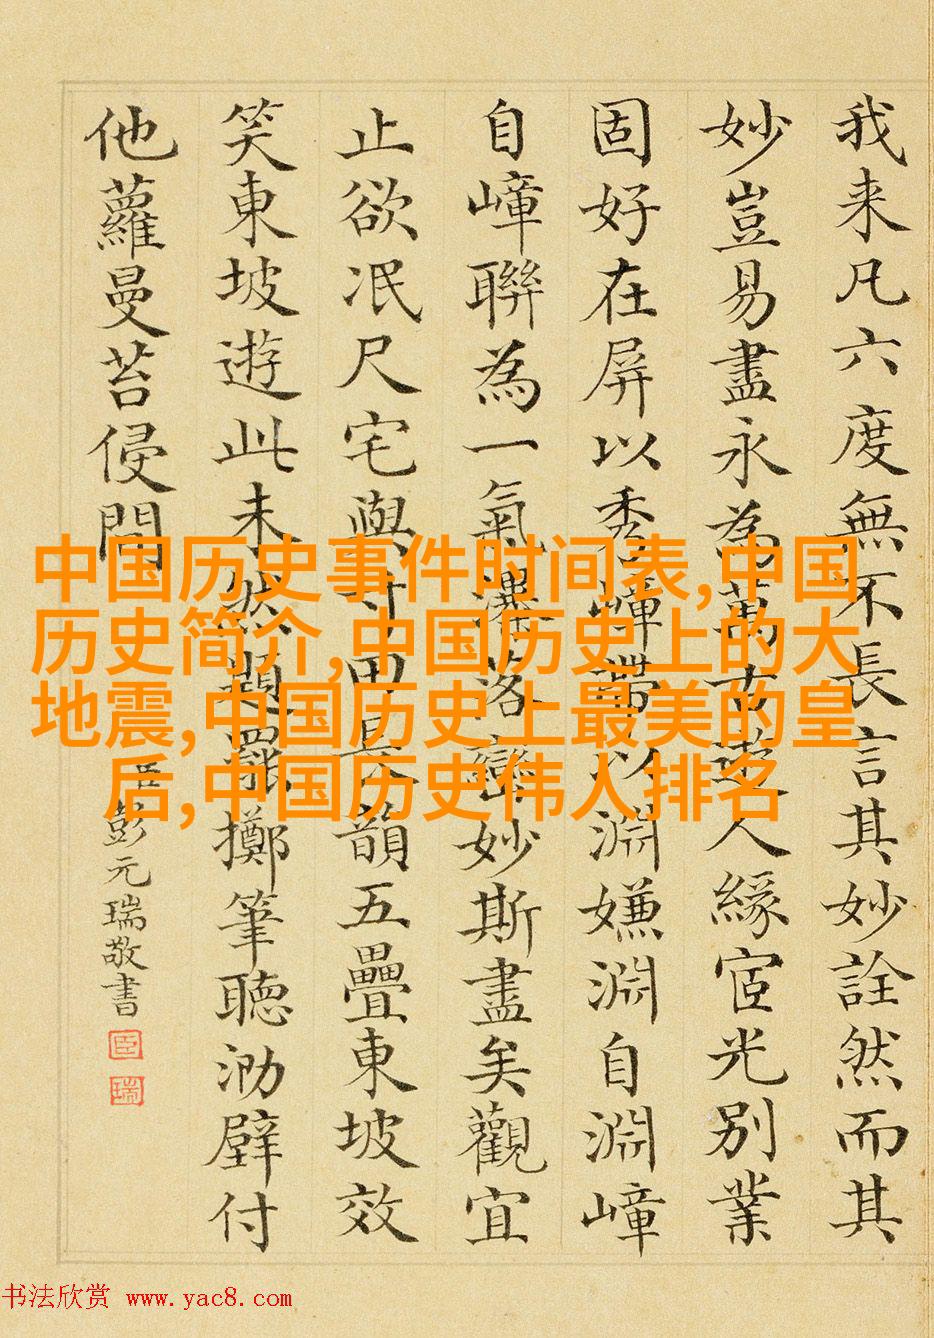 我来凡六度無不長言其妙詮然而其
妙豈易盡永為萬古人緣宧光別業
固好在屏以秀嶂帶以淵嫌淵自淵嶂
自嶂聯為一氣落巒妙斯盡矣觀宜
止欲泯尺宅與寸田長韻五疊東坡效
笑東坡遊此未然題罷擲筆聴泐壁付
他蘿曼苔侵間
臣彭元瑞敬書
臣
瑞
中国历史事件时间表,中国
历史简介,中国历史上的大
地震,中国历史上最美的皇
后,中国历史伟人排名
书法欣赏 www.yac8.com